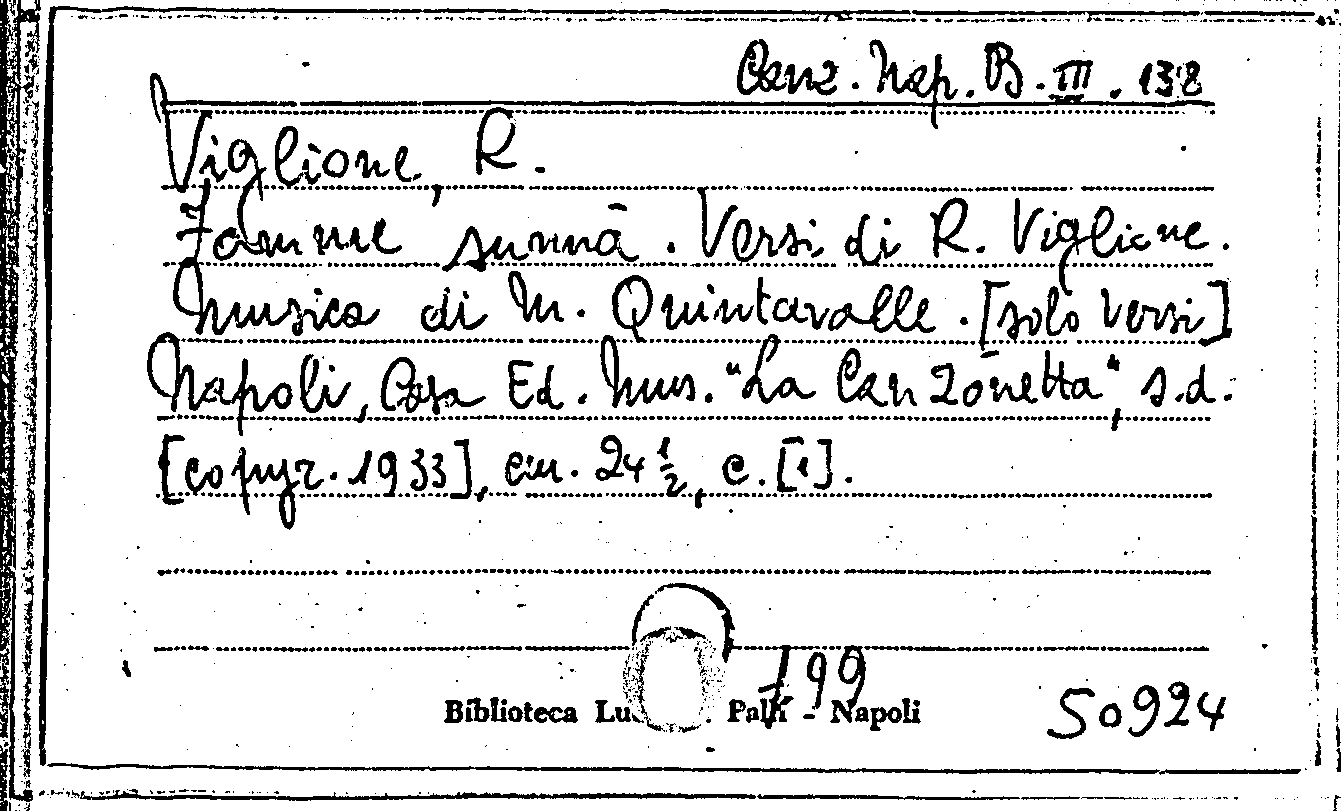 Canz. Nap. B. III. 138
Viglione, R.
Famme sunnà. Versi di R. Viglione.
Musica di M. Quintavalle. [solo versi]
Napoli, Casa Ed. Mus. "La Canzonetta", s.d.
[copyr. 1933], cm. 24 1/2, c. [1].
799
Biblioteca Lu Palli - Napoli
50924